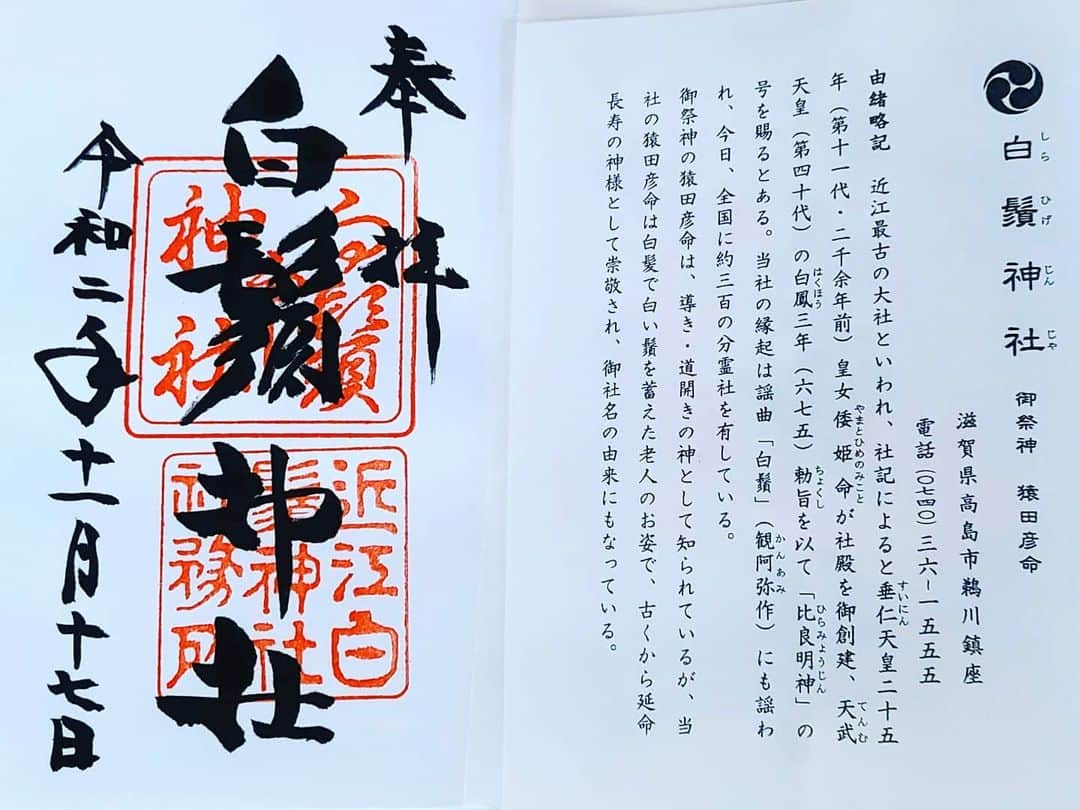 奉拝
白鬚神社
令和二年十一月十七日
白鬚神社
近江白鬚神社社務所
白鬚神社 御祭神 猿田彦命
しらひげじんじゃ
滋賀県高島市鵜川鎮座
電話(〇七四〇)三六-一五五五
由緒略記 近江最古の大社といわれ、社記によると垂仁天皇二十五
すいにん
年(第十一代・二千余年前)皇女倭姫命が社殿を御創建、天武
やまとひめのみこと てんむ
天皇(第四十代)の白鳳三年(六七五)勅旨を以て「比良明神」の
はくほう ちょくし ひらみょうじん
号を賜るとある。当社の縁起は謡曲「白鬚」(観阿弥作)にも謡わ
かんあみ
れ、今日、全国に約三百の分霊社を有している。
御祭神の猿田彦命は、導き・道開きの神として知られているが、当
社の猿田彦命は白髪で白い鬚を蓄えた老人のお姿で、古くから延命
長寿の神様として崇敬され、御社名の由来にもなっている。